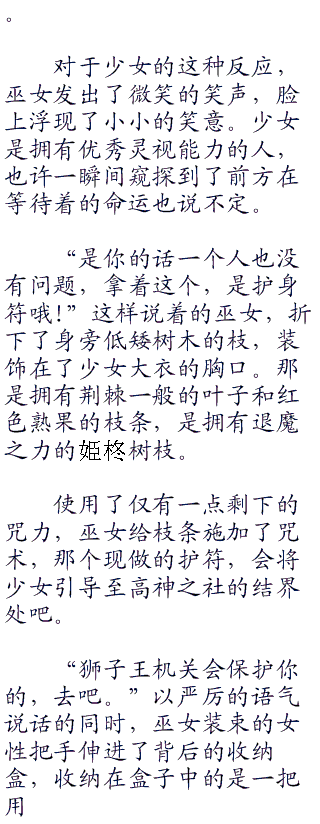 。
对于少女的这种反应，
巫女发出了微笑的笑声，脸
上浮现了小小的笑意。少女
是拥有优秀灵视能力的人，
也许一瞬间窥探到了前方在
等待着的命运也说不定。
“是你的话一个人也没
有问题，拿着这个，是护身
符哦！”这样说着的巫女，折
下了身旁低矮树木的枝，装
饰在了少女大衣的胸口。那
是拥有荆棘一般的叶子和红
色熟果的枝条，是拥有退魔
之力的姫柊树枝。
使用了仅有一点剩下的
咒力，巫女给枝条施加了咒
术，那个现做的护符，会将
少女引导至高神之社的结界
处吧。
“狮子王机关会保护你
的，去吧。”以严厉的语气
说话的同时，巫女装束的女
性把手伸进了背后的收纳
盒，收纳在盒子中的是一把
用